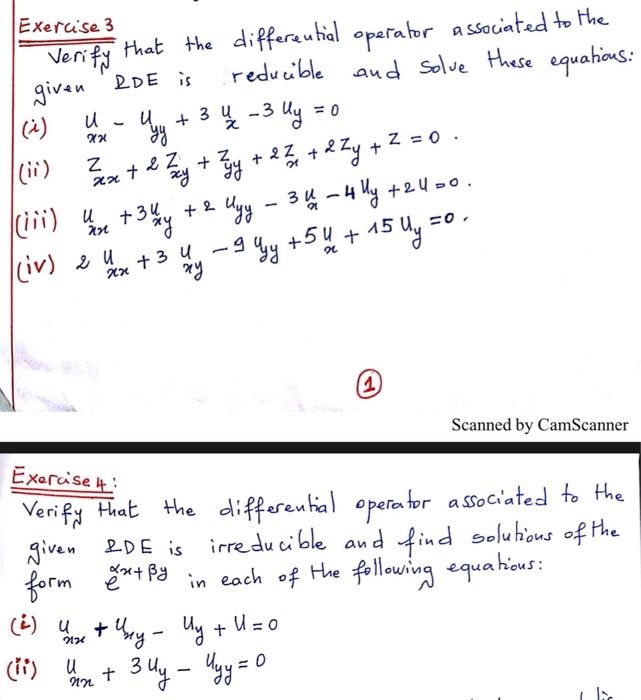 Exercise 3
Verify that the differential operator associated to the
given PDE is reducible and solve these equations:
(i) u_xx - u_yy + 3 u_x - 3 u_y = 0
(ii) z_xx + 2 z_xy + z_yy + 2 z_x + 2 z_y + z = 0 .
(iii) u_xx + 3 u_xy + 2 u_yy - 3 u_x - 4 u_y + 2 u = 0 .
(iv) 2 u_xx + 3 u_xy - 9 u_yy + 5 u_x + 15 u_y = 0 .
1
Scanned by CamScanner
Exercise 4 :
Verify that the differential operator associated to the
given PDE is irreducible and find solutions of the
form e^{αx+βy} in each of the following equations:
(i) u_xx + u_xy - u_y + u = 0
(ii) u_xx + 3 u_y - u_yy = 0